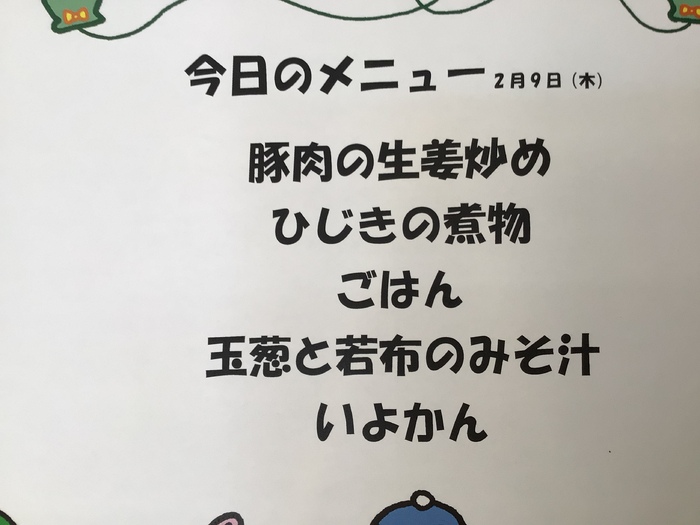 今日のメニュー 2月9日（木）
豚肉の生姜炒め
ひじきの煮物
ごはん
玉葱と若布のみそ汁
いよかん